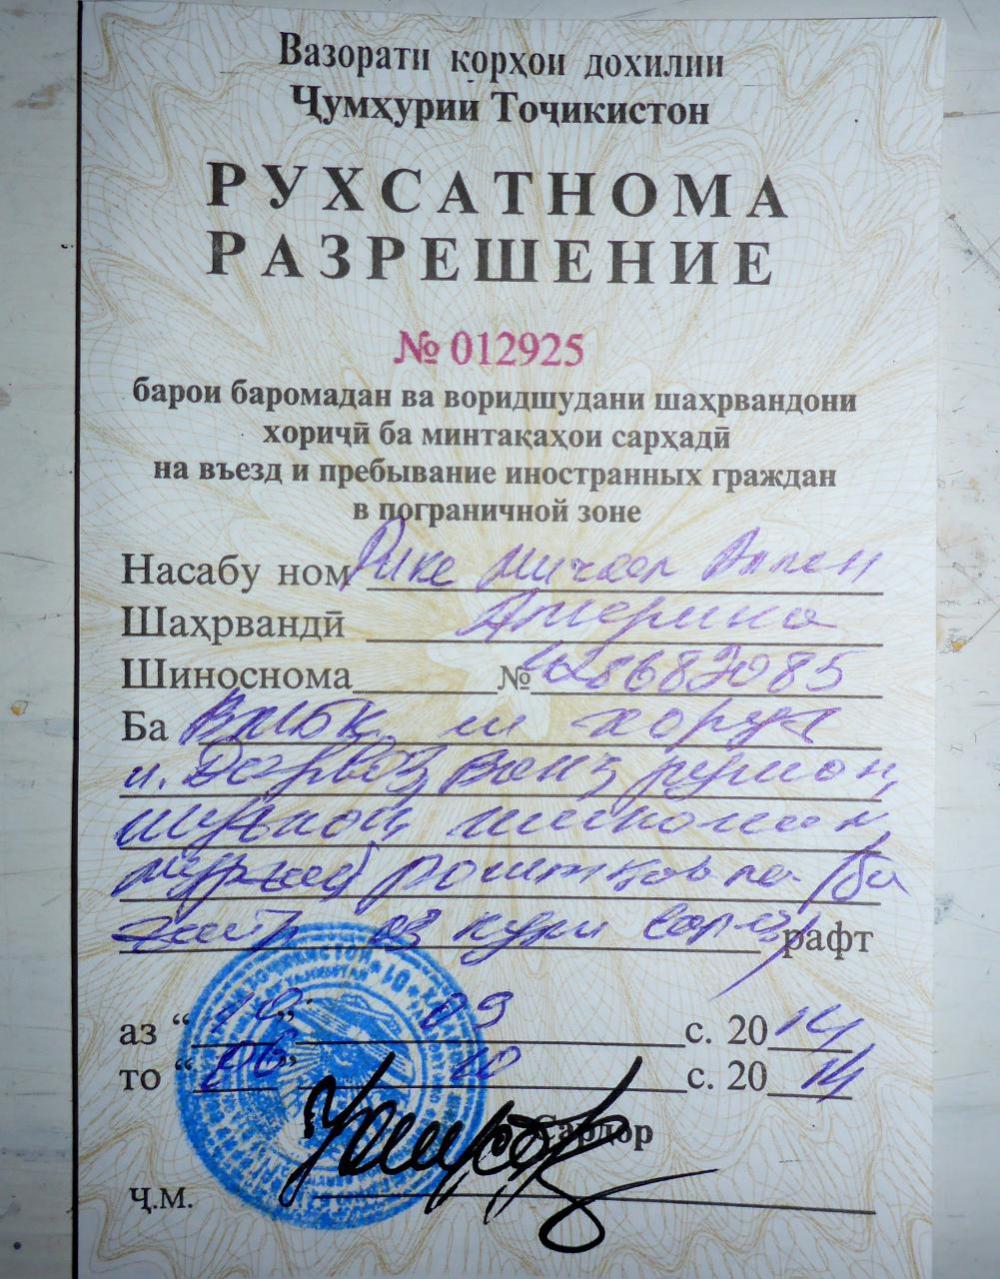 Вазорати корҳои дохилии
Ҷумҳурии Тоҷикистон
РУХСАТНОМА
РАЗРЕШЕНИЕ
№ 012925
барои баромадан ва воридшудани шаҳрвандони
хориҷӣ ба минтақаҳои сарҳадӣ
на въезд и пребывание иностранных граждан
в пограничной зоне
Насабу ном Аллен
Шаҳрвандӣ Америка
Шиноснома №
Ба ВМБК ш хоруғ
н. Дарвоз, Ванҷ, рушон,
шуғнон, ишкошим,
мурғоб, роштқалъа (ба
ғайр аз кули сарез) рафт
аз “ ” 09 с. 2014
то “06” 10 с. 2014
Сардор
Ҷ.М.